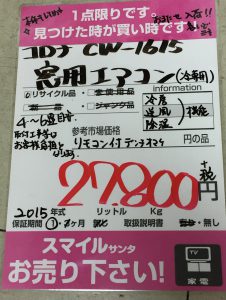 1点限りです。
見つけた時が買い時です
コロナ CW-1615
窓用エアコン(冷専用)
information
リサイクル品
ジャンク品
冷房
送風
除湿
機能
4~6畳目安
取付工事等は
お客様負担と
なります。
参考市場価格
円の品
リモコン付
27,800円
+税
2015年式 リットル Kg
保証期間 ヶ月 取扱説明書 ・無し
スマイルサンタ
お売り下さい!
TV
家電